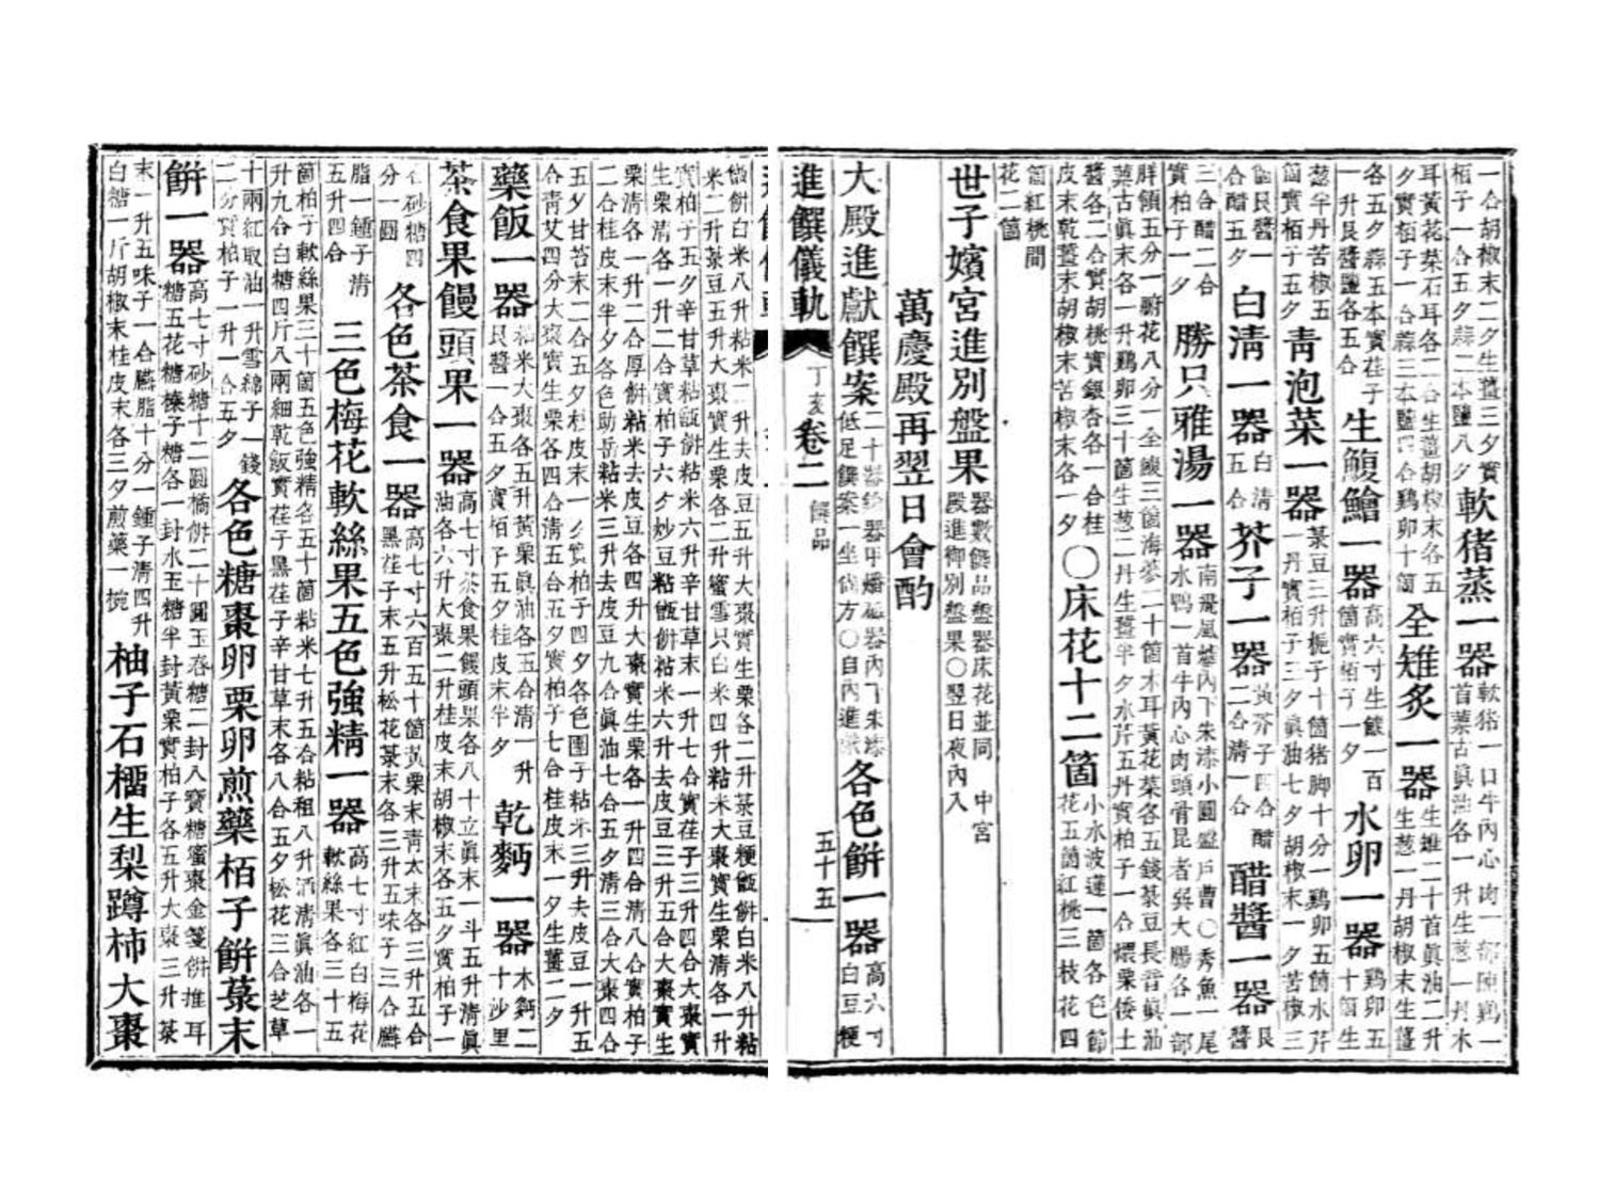 一合胡椒末二夕生薑三夕實栢子一合五夕蒜二本鹽八夕 軟猪蒸一器 軟猪一口牛內心肉一部陳鷄一首菉古眞油各一升生葱一丹木
耳黃花菜石耳各二合生薑胡椒末各五夕實栢子一合蒜三本鹽四合鷄卵十箇 全雉炙一器 生雉二十首眞油二升生葱一丹胡椒末生薑
各五夕蒜五本實荏子一升艮醬鹽各五合 生鰒鱠一器 高六寸生鰒一百箇實栢子一夕 水卵一器 鷄卵五十箇生
葱半丹苦椒五箇實栢子五夕 靑泡菜一器 菉豆三升梔子十箇猪脚十分一鷄卵五箇水芹一丹實栢子三夕眞油七夕胡椒末一夕苦椒三
箇艮醬一合醋五夕 白淸一器 白淸五合 芥子一器 黃芥子四合醋二合淸一合 醋醬一器 艮醬
三合醋二合實栢子一夕 勝只雅湯一器 南飛風爐內下朱漆小圓盤戶曹〇秀魚一尾水鴨一首牛內心肉頭骨昆者巽大腸各一部
胖領五分一腑花八分一全鰒三箇海蔘二十箇木耳黃花菜各五錢菉豆長音眞油菉古眞末各一升鷄卵三十箇生葱二丹生薑半夕水芹五丹實栢子一合煨栗倭土
醬各二合實胡桃實銀杏各一合桂皮末乾薑末胡椒末苦椒末各一夕 〇床花十二箇 小水波蓮一箇各色節花五箇紅桃三枝花四
箇紅桃間花二箇
世子嬪宮進別盤果 器數饌品盤器床花並同 中宮殿進御別盤果〇翌日夜內入
萬慶殿再翌日會酌
大殿進獻饌案 二十器鍮器甲燔磁器內下朱漆低足饌案一坐尙方〇自內進獻 各色餠一器 高六寸白豆粳
進饌儀軌 丁亥 卷二 饌品 五十五
甑餠白米八升粘米二升去皮豆五升大棗實生栗各二升菉豆粳甑餠白米八升粘米二升菉豆五升大棗實生栗各二升蜜雪只白米四升粘米大棗實生栗淸各一升
實柏子五夕辛甘草粘甑餠粘米六升辛甘草末一升七合實荏子三升四合大棗實生栗淸各一升二合實柏子六夕炒豆粘甑餠粘米六升去皮豆三升五合大棗實生
栗淸各一升二合厚餠粘米去皮豆各四升大棗實生栗各一升四合淸八合實柏子二合桂皮末半夕各色助岳粘米三升去皮豆九合眞油七合五夕淸三合大棗四合
五夕甘苔末二合五夕桂皮末一夕實柏子四夕各色團子粘米三升去皮豆一升五合靑艾四分大棗實生栗各四合淸五合五夕實柏子七合桂皮末一夕生薑二夕
藥飯一器 粘米大棗各五升黃栗眞油各五合淸一升艮醬一合五夕實栢子五夕桂皮末半夕 乾麪一器 木麪二十沙里
茶食果饅頭果一器 高七寸茶食果饅頭果各八十立眞末一斗五升淸眞油各六升大棗二升桂皮末胡椒末各五夕實栢子一
合砂糖四分一圓 各色茶食一器 高七寸六百五十箇黃栗末靑太末各三升五合黑荏子末五升松花菉末各三升五味子三合臙
脂一鍾子淸五升四合 三色梅花軟絲果五色強精一器 高七寸紅白梅花軟絲果各三十五
箇柏子軟絲果三十箇五色強精各五十箇粘米七升五合粘租八升酒淸眞油各一升九合白糖四斤八兩細乾飯實荏子黑荏子辛甘草末各八合五夕松花三合芝草
十兩紅取油一升雪綿子一錢二分實栢子一升一合五夕 各色糖棗卵栗卵煎藥栢子餠菉末
餠一器 高七寸砂糖十二圓橘餠二十圓玉春糖二封八寶糖蜜棗金箋餠推耳糖五花糖榛子糖各一封水玉糖半封黃栗實栢子各五升大棗三升菉
末一升五味子一合臙脂十分一鍾子淸四升白糖一斤胡椒末桂皮末各三夕煎藥一椀 柚子石榴生梨蹲柿大棗